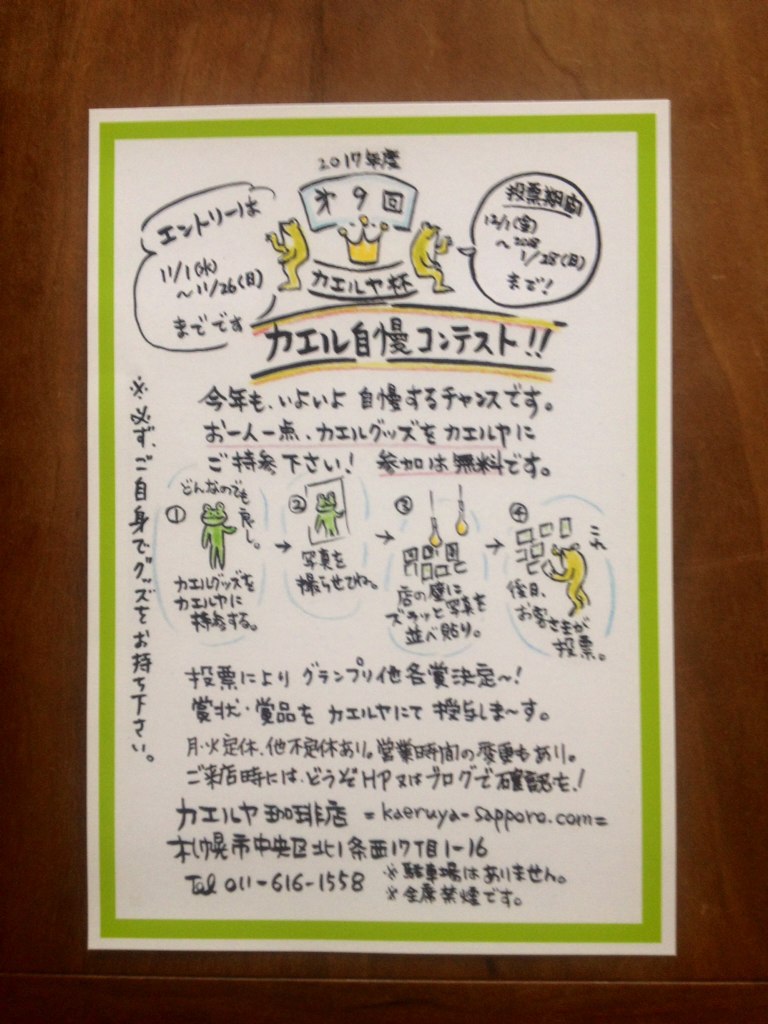 2017年度
第9回
カエルヤ杯
エントリーは
11/1(水)
〜11/26(日)
までです
投票期間
12/1(金)
〜2018
1/28(日)
まで!
カエル自慢コンテスト!!
今年も、いよいよ 自慢するチャンスです。
お一人一点、カエルグッズを カエルヤに
ご持参下さい! 参加は無料です。
※必ず、ご自身でグッズをお持ち下さい。
① どんなのでも
良し。
カエルグッズを
カエルヤに
持参する。
→
②
写真を
撮らせてね。
→
③
店の壁に
ズラッと写真を
並べ貼り。
→
④
これ
後日、
お客さまが
投票。
投票により グランプリ他各賞決定〜!
賞状・賞品を カエルヤにて 授与しま〜す。
月・火定休、他不定休あり。営業時間の変更もあり。
ご来店時には、どうぞHP又はブログで確認を!
カエルヤ珈琲店 =kaeruya-sapporo.com=
札幌市中央区北1条西17丁目1-16
Tel 011-616-1558
※駐車場はありません。
※全席禁煙です。